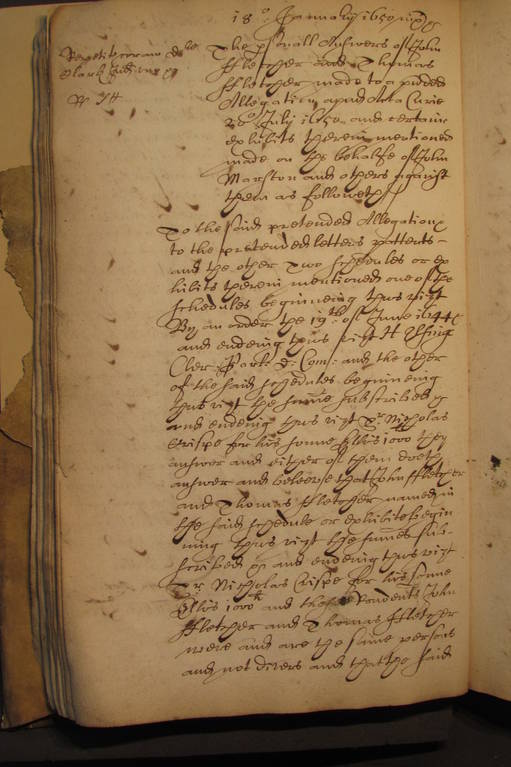 18.o January 1650
The psonall Answers of John
ffletcher and Thomas
ffletcher made to a ptded
Allegation apud Acta Curie
July 1650. and certaine
exhibits therein mentioned
made on the behalfe of John
Marston and others against
them as followeth
To the said pretended Allegation
to the pretended letters pattents
and the other Two schedules or ex
hibits therein mentioned one of the
schedules beginneing thus vizt
By an order the 19th of June 164
and endeing thus vizt H Elsing
Cler. Parl. D. Com: and the other
of the said schedules beginneing
thus vizt the sume subscribed
and endeing thus vizt Dr. Nicholas
Crispe for his sonne Ellis 100 they
answer and either of them doeth
answer and beleeve that John ffletcher
and Thomas ffletcher named in
the said schedule or exhibite begin
ning thus vizt the sumes sub-
scribed and endeing thus vizt
Dr. Nicholas Crispe for his sonne
Ellis 100 and these Rondents John
ffletcher and Thomas ffletcher
were and are the same persons
and not divers and that the said